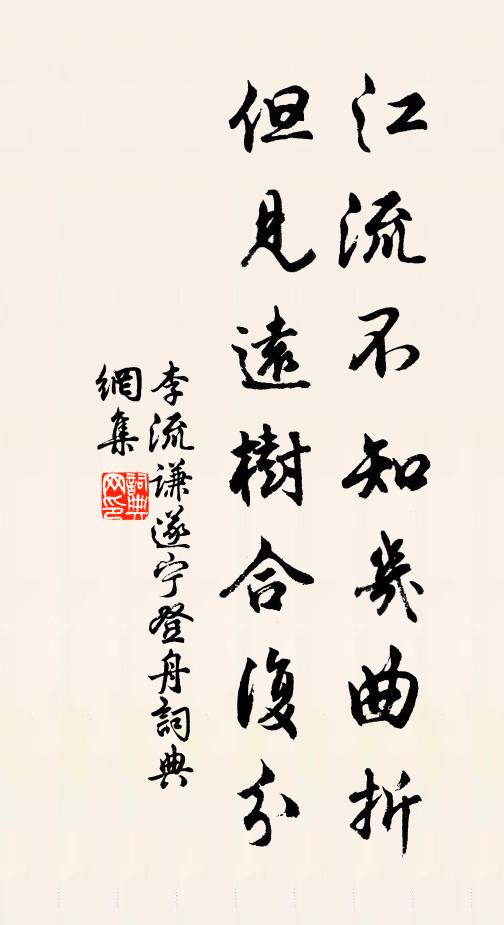 江流不知幾曲折
但見遠樹合復分
李流謙遂寧登舟詞典
網集
詞典
网印